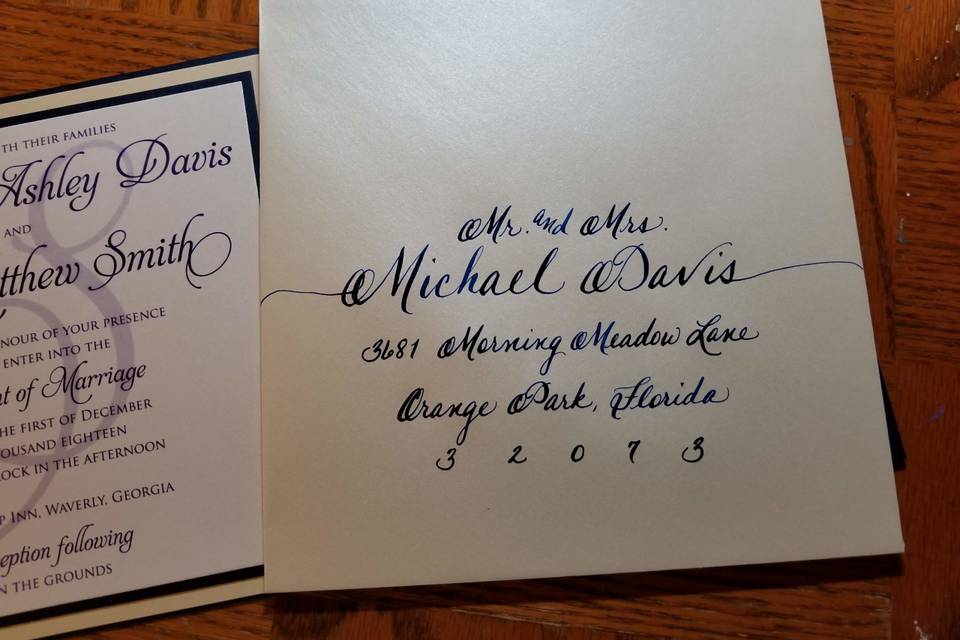 TH THEIR FAMILIES
Ashley Davis
AND
tthew Smith
NOUR OF YOUR PRESENCE
ENTER INTO THE
t of Marriage
HE FIRST OF DECEMBER
OUSAND EIGHTEEN
OCK IN THE AFTERNOON
P INN, WAVERLY, GEORGIA
eption following
N THE GROUNDS
Mr. and Mrs.
Michael Davis
3681 Morning Meadow Lane
Orange Park, Florida
3 2 0 7 3